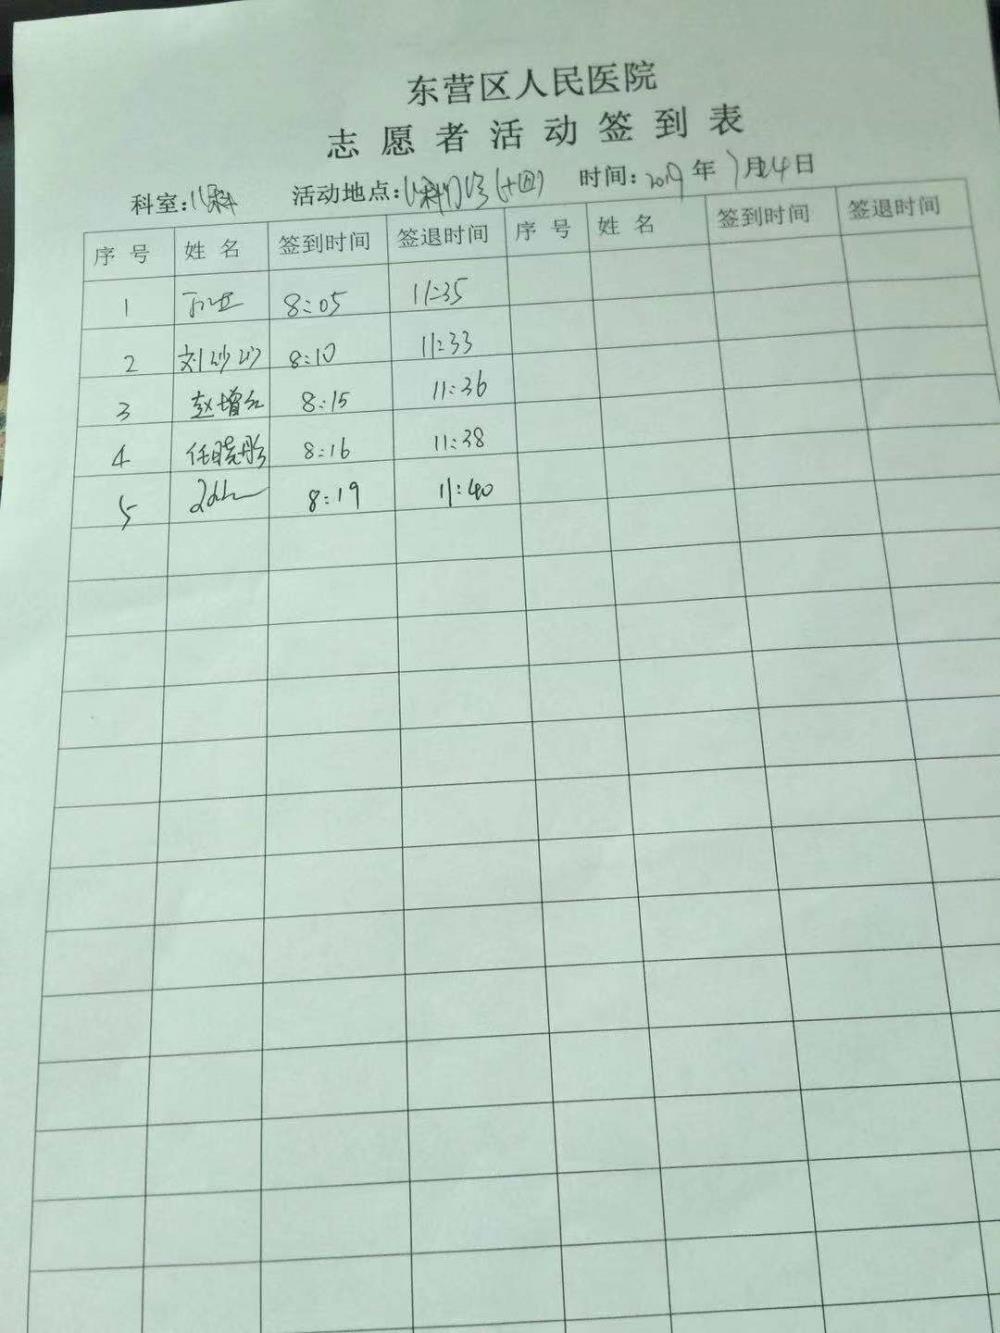 东营区人民医院
志愿者活动签到表
科室:儿科 活动地点:儿科门诊(十四) 时间:2019年7月24日
序号 姓名 签到时间 签退时间 序号 姓名 签到时间 签退时间
1 8:05 11:35
2 刘 8:10 11:33
3 赵增 8:15 11:36
4 任晓彤 8:16 11:38
5 8:19 11:40